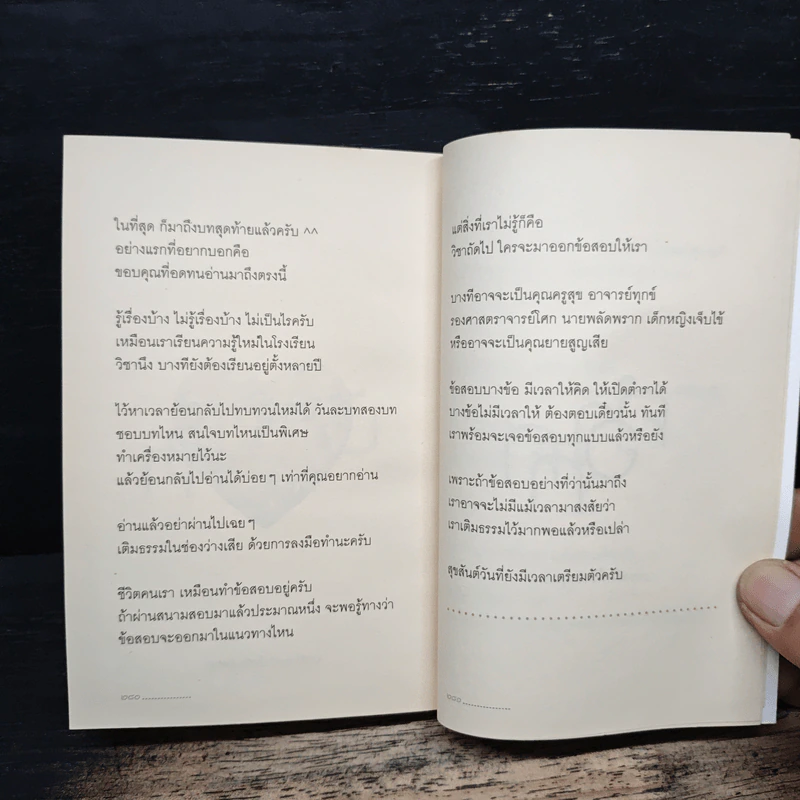 ในที่สุด ก็มาถึงบทสุดท้ายแล้วครับ ^^
อย่างแรกที่อยากบอกคือ
ขอบคุณที่อดทนอ่านมาถึงตรงนี้
รู้เรื่องบ้าง ไม่รู้เรื่องบ้าง ไม่เป็นไรครับ
เหมือนเราเรียนความรู้ใหม่ในโรงเรียน
วิชานึง บางทียังต้องเรียนอยู่ตั้งหลายปี
ไว้หาเวลาย้อนกลับไปทบทวนใหม่ได้ วันละบทสองบท
ชอบบทไหน สนใจบทไหนเป็นพิเศษ
ทำเครื่องหมายไว้นะ
แล้วย้อนกลับไปอ่านได้บ่อยๆ เท่าที่คุณอยากอ่าน
อ่านแล้วอย่าผ่านไปเฉยๆ
เติมธรรมในช่องว่างเสีย ด้วยการลงมือทำนะครับ
ชีวิตคนเรา เหมือนทำข้อสอบอยู่ครับ
ถ้าผ่านสนามสอบมาแล้วประมาณหนึ่ง จะพอรู้ทางว่า
ข้อสอบจะออกมาในแนวทางไหน
แต่สิ่งที่เราไม่รู้ก็คือ
วิชาถัดไป ใครจะมาออกข้อสอบให้เรา
บางทีอาจจะเป็นคุณครูสุข อาจารย์ทุกข์
รองศาสตราจารย์โศก นายพลัดพราก เด็กหญิงเจ็บไข้
หรืออาจจะเป็นคุณยายสูญเสีย
ข้อสอบบางข้อ มีเวลาให้คิด ให้เปิดตำราได้
บางข้อไม่มีเวลาให้ ต้องตอบเดี๋ยวนั้น ทันที
เราพร้อมจะเจอข้อสอบทุกแบบแล้วหรือยัง
เพราะถ้าข้อสอบอย่างที่ว่านั้นมาถึง
เราอาจจะไม่มีแม้เวลามาสงสัยว่า
เราเติมธรรมไว้มากพอแล้วหรือเปล่า
สุขสันต์วันที่ยังมีเวลาเตรียมตัวครับ